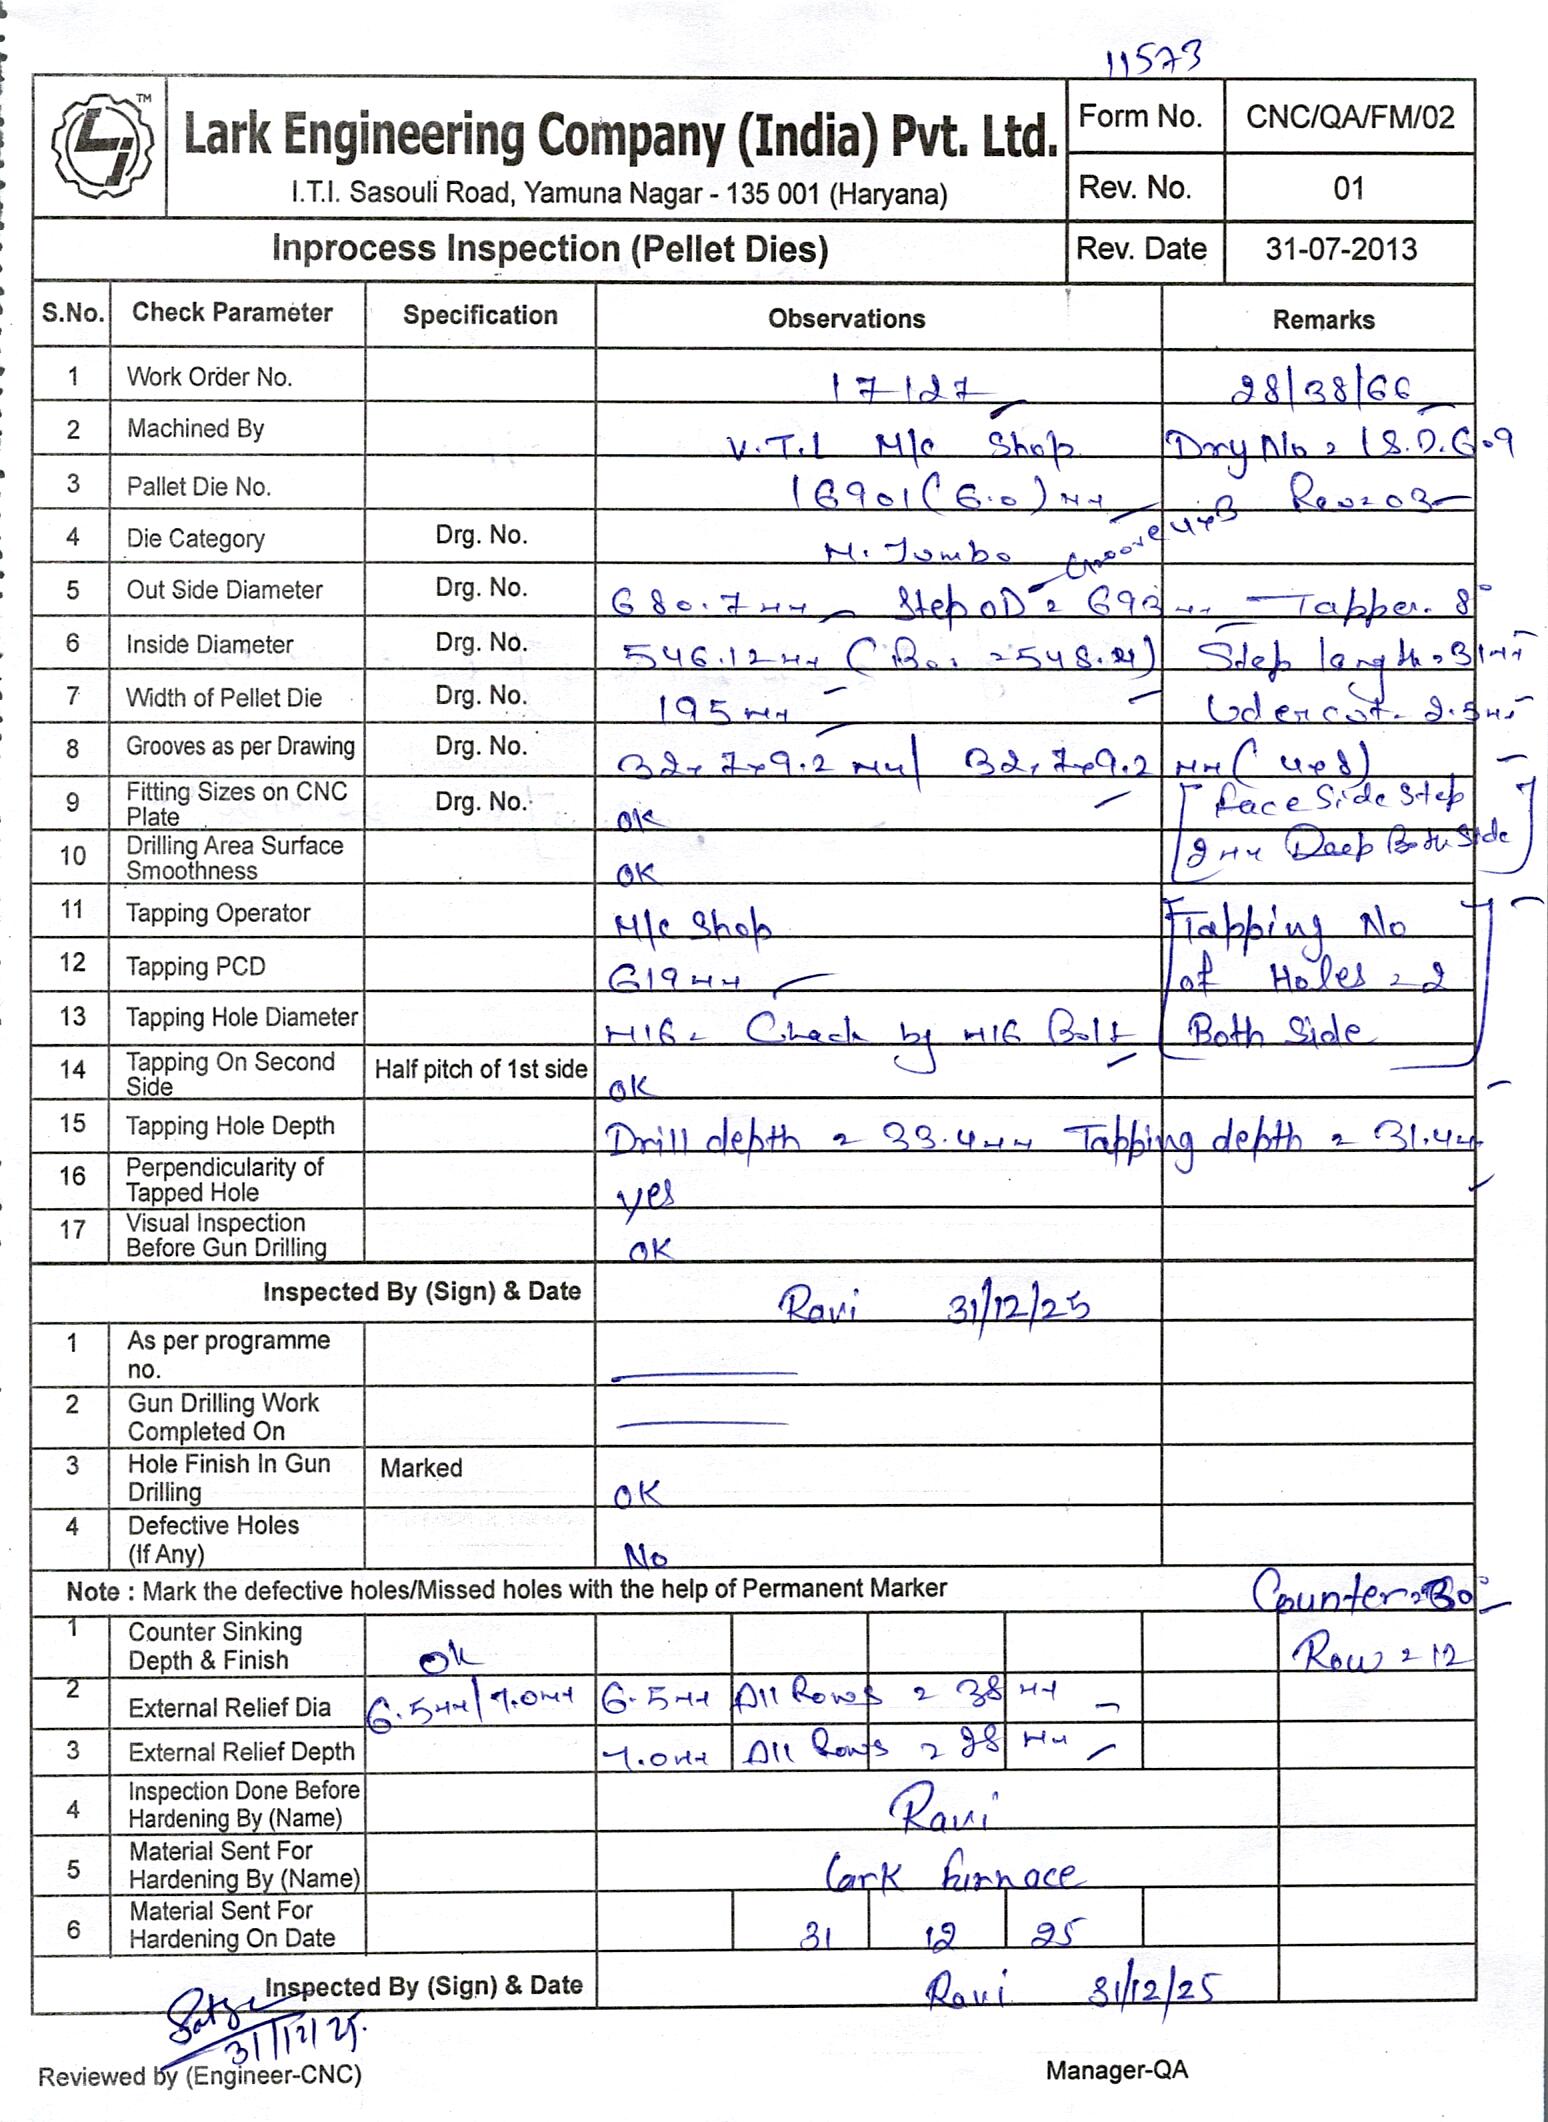 11573
TM
Lark Engineering Company (India) Pvt. Ltd.
I.T.I. Sasouli Road, Yamuna Nagar - 135 001 (Haryana)
Form No. CNC/QA/FM/02
Rev. No. 01
Inprocess Inspection (Pellet Dies) Rev. Date 31-07-2013
S.No. Check Parameter Specification Observations Remarks
1 Work Order No. 17127 28/38/66
2 Machined By V.T.L M/c Shop Drg No =
3 Pallet Die No. 16901(6.0) mm Rev = 03
4 Die Category Drg. No. M. Jumbo Groove 4x3
5 Out Side Diameter Drg. No. 680.7 mm Step OD = 693 mm Tapper. 8°
6 Inside Diameter Drg. No. 546.12 mm Step length = 31 mm
7 Width of Pellet Die Drg. No. 195 mm Udercut. 2.5 mm
8 Grooves as per Drawing Drg. No. 32x7x9.2 mm / 32x7x9.2 mm (4x8)
9 Fitting Sizes on CNC Plate Drg. No. OK [Face Side Step
10 Drilling Area Surface Smoothness OK 2 mm Deep Both Side]
11 Tapping Operator M/c Shop [Tapping No
12 Tapping PCD 619 mm of Holes = 2
13 Tapping Hole Diameter M16 = Check by M16 Bolt Both Side]
14 Tapping On Second Side Half pitch of 1st side OK
15 Tapping Hole Depth Drill depth = 33.4 mm Tapping depth = 31.4
16 Perpendicularity of Tapped Hole yes
17 Visual Inspection Before Gun Drilling OK
Inspected By (Sign) & Date Ravi 31/12/25
1 As per programme no.
2 Gun Drilling Work Completed On
3 Hole Finish In Gun Drilling Marked OK
4 Defective Holes (If Any) No
Note : Mark the defective holes/Missed holes with the help of Permanent Marker Counter = 30°
1 Counter Sinking Depth & Finish Ok Row = 12
2 External Relief Dia 6.5 mm/7.0 mm 6.5 mm All Rows = 38 mm
3 External Relief Depth 7.0 mm All Rows = 28 mm
4 Inspection Done Before Hardening By (Name) Ravi
5 Material Sent For Hardening By (Name) Lark furnace
6 Material Sent For Hardening On Date 31 12 25
Inspected By (Sign) & Date Ravi 31/12/25
31/12/25.
Reviewed by (Engineer-CNC) Manager-QA